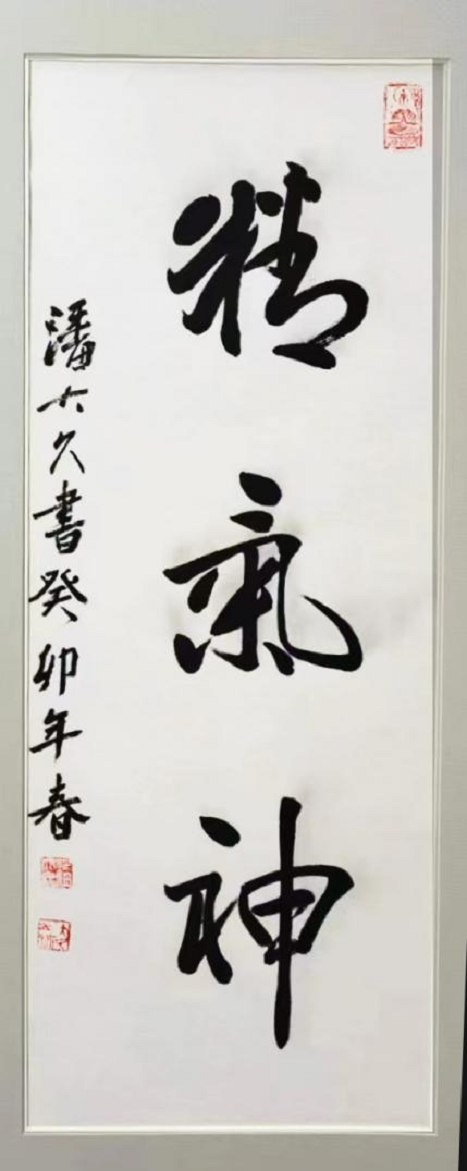 精氣神
潘大久書癸卯年春